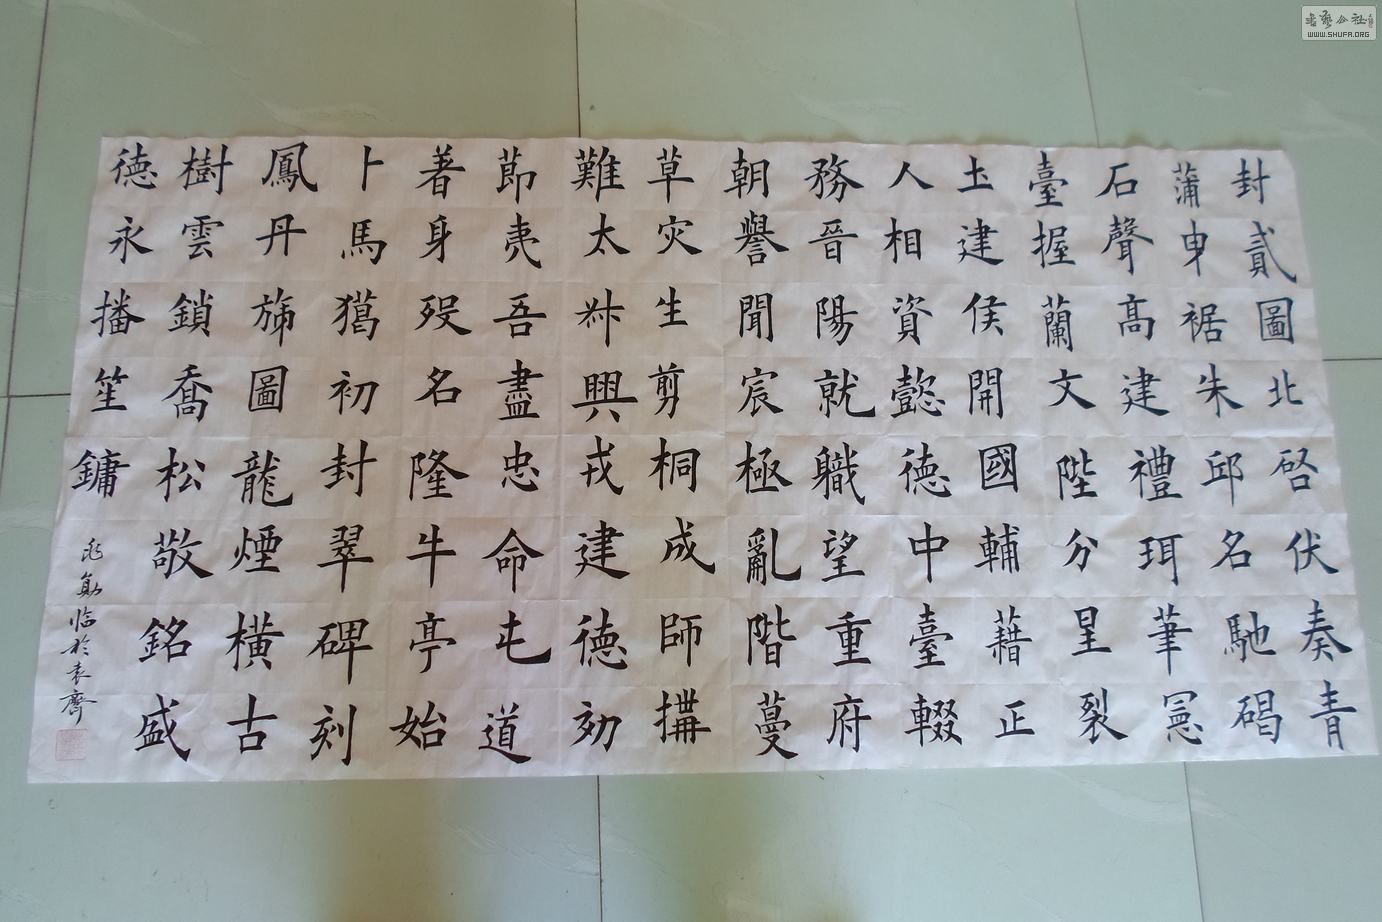 封貳圖北启伏奏青
蒲申裾朱邱名馳碣
石聲高建禮珥筆憲
臺握蘭文陛分星裂
土建侯開國輔藉正
人相資懿德中臺輟
務晉陽就職望重府
朝譽聞宸極亂階蔓
草灾生剪桐成師搆
難太叔興戎建德劾
節夷吾盡忠命屯道
著身歿名隆牛亭始
卜馬獦初封翠碑刻
鳳丹旆圖龍煙橫古
樹雲鎖喬松敬銘盛
德永播笙鏞
臨於袁齋
书艺公社
WWW.SHUFA.ORG